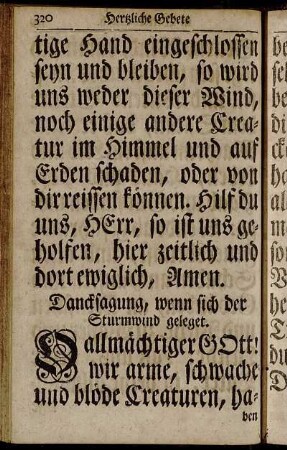 320 Hertzliche Gebete
tige Hand eingeschlossen
seyn und bleiben, so wird
uns weder dieser Wind,
noch einige andere Crea-
tur im Himmel und auf
Erden schaden, oder von
dir reissen können. Hilf du
uns, HErr, so ist uns ge-
holfen, hier zeitlich und
dort ewiglich, Amen.
Dancksagung, wenn sich der
Sturmwind geleget.
O allmächtiger GOtt!
wir arme, schwache
und blöde Creaturen, ha-
ben